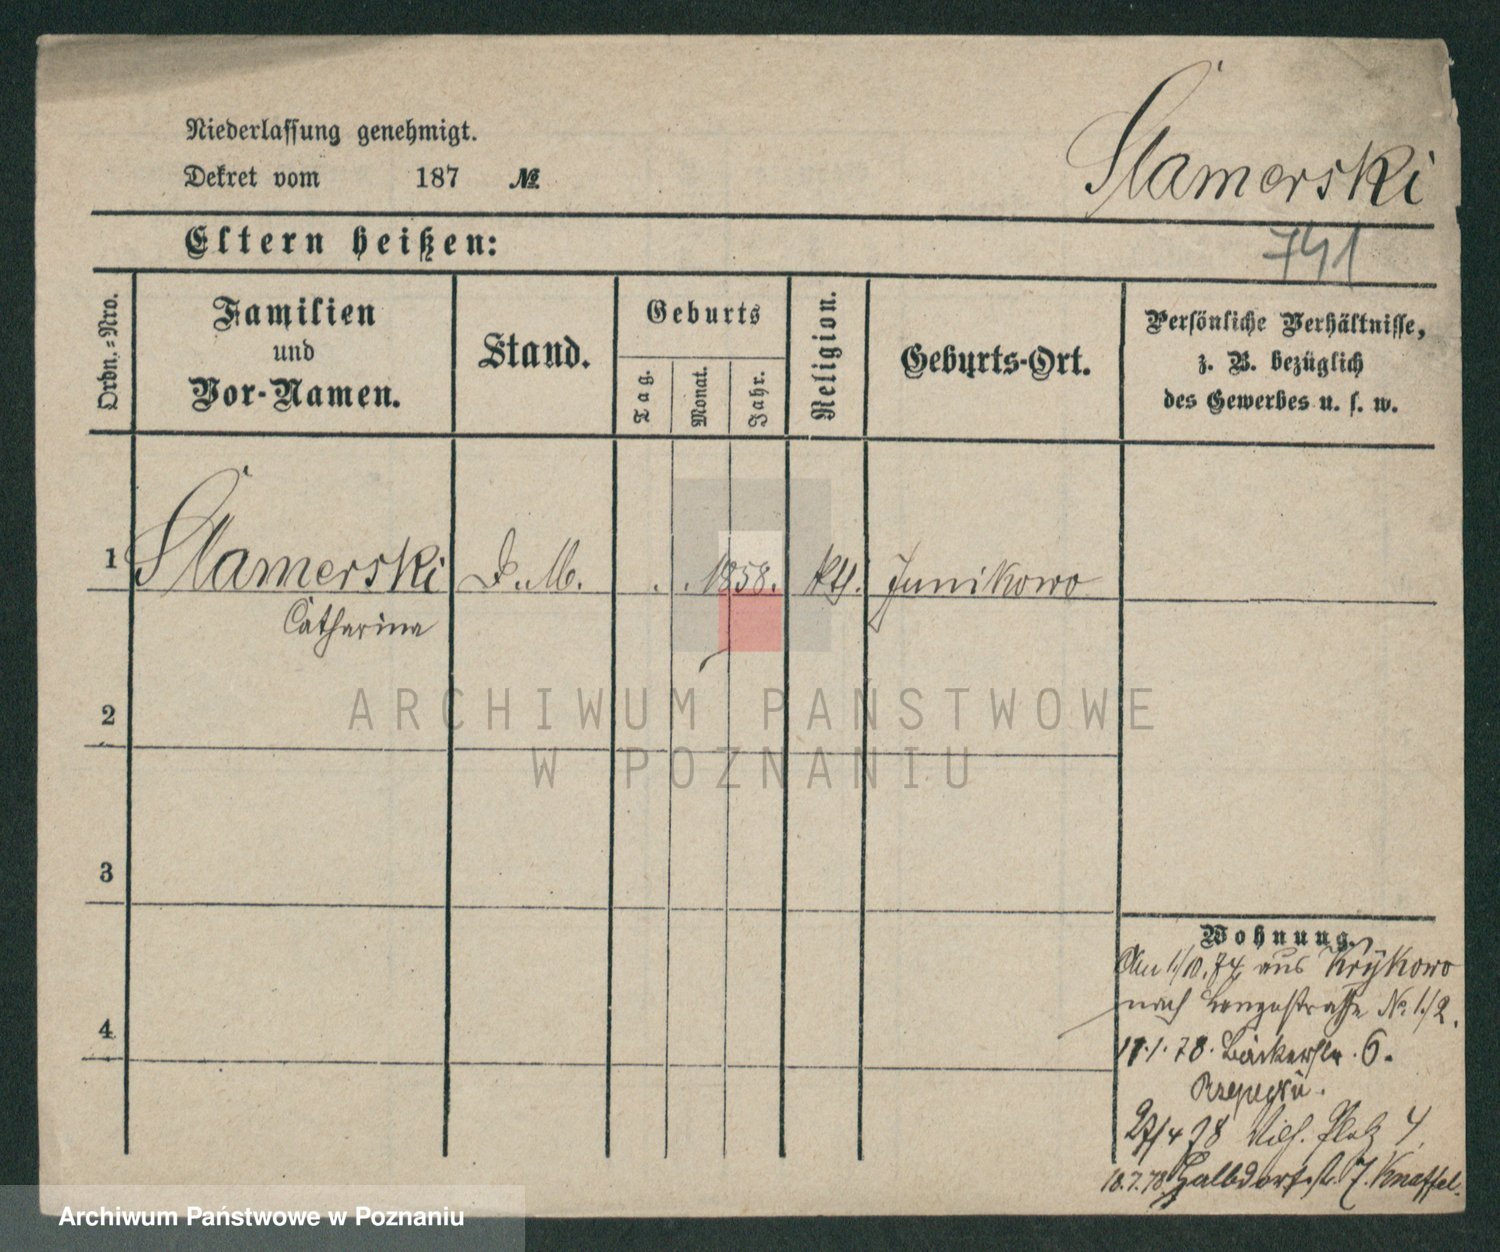 Niederlassung genehmigt.
Dekret vom 187 №
Slamerski
741
Eltern heißen:
Ordn.=Nro.
Familien
und
Vor-Namen.
Stand.
Geburts
Tag.
Monat.
Jahr.
Religion.
Geburts-Ort.
Persönliche Verhältnisse,
z. B. bezüglich
des Gewerbes u. s. w.
1 Slamerski D. M. . . 1858. kth. Junikowo
Catharina
2
3
4
Wohnung.
Am 1/10. 74 aus Krzykowo
nach Langestraße No 1/2.
17.1.78. Bäckerstr. 6.
27/4 78 Wilh. Platz 4
10.7.78 Halbdorfstr. 7. Knaffel.
ARCHIWUM PAŃSTWOWE
W POZNANIU
Archiwum Państwowe w Poznaniu